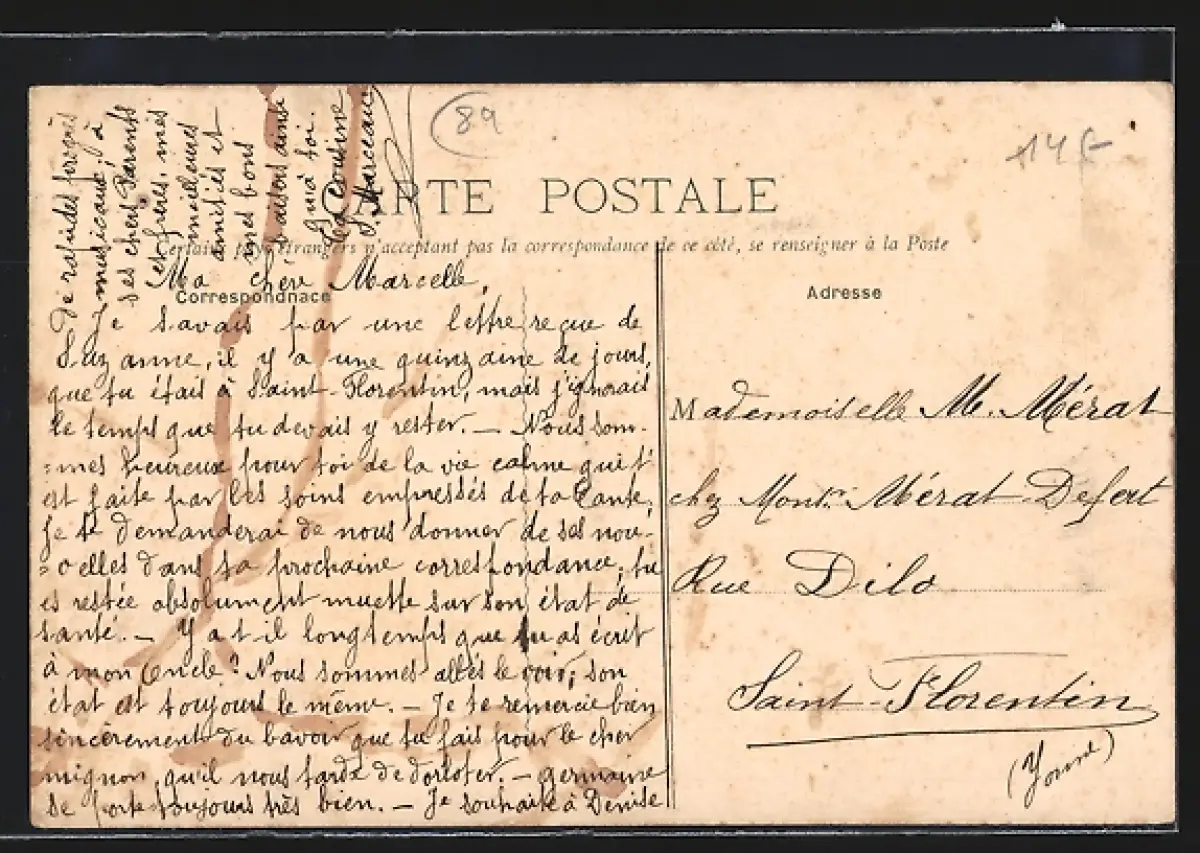 89
14 F
CARTE POSTALE
Certains pays étrangers n'acceptant pas la correspondance de ce côté, se renseigner à la Poste
Correspondnace
Adresse
Ma chère Marcelle,
Je savais par une lettre reçue de
Suzanne, il y a une quinzaine de jours,
que tu étais à Saint-Florentin, mais j'ignorais
le temps que tu devais y rester. — Nous som-
=mes heureux pour toi de la vie calme qui t'
est faite par les soins empressés de ta Tante,
je te demanderai de nous donner de ses nou-
=velles dans ta prochaine correspondance, tu
es restée absolument muette sur son état de
santé. — Y a t-il longtemps que tu as écrit
à mon Oncle? Nous sommes allés le voir, son
état est toujours le même. — Je te remercie bien
sincèrement du bavoir que tu fais pour le cher
mignon, qu'il nous tarde de dorloter. — Germaine
se porte toujours très bien. — Je souhaite à Denise
de rapides progrès
musicaux; à
ses chers Parents
et frères, mes
meilleures
amitiés et
mes bons
baisers ainsi
qu'à toi.
Ta Cousine
S. Marceau
Mademoiselle M. Mérat
chez Monsr. Mérat-Defert
Rue Dilo
Saint-Florentin
(Yonne)